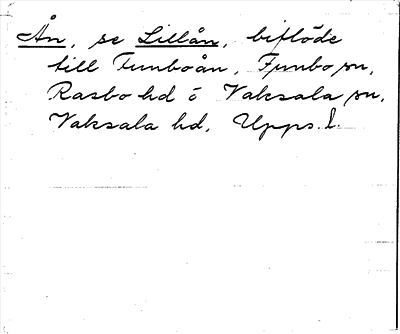 Ån, se Lillån, biflöde
till Funboån, Funbo sn,
Rasbo hd o Vaksala sn,
Vaksala hd, Upps. l.